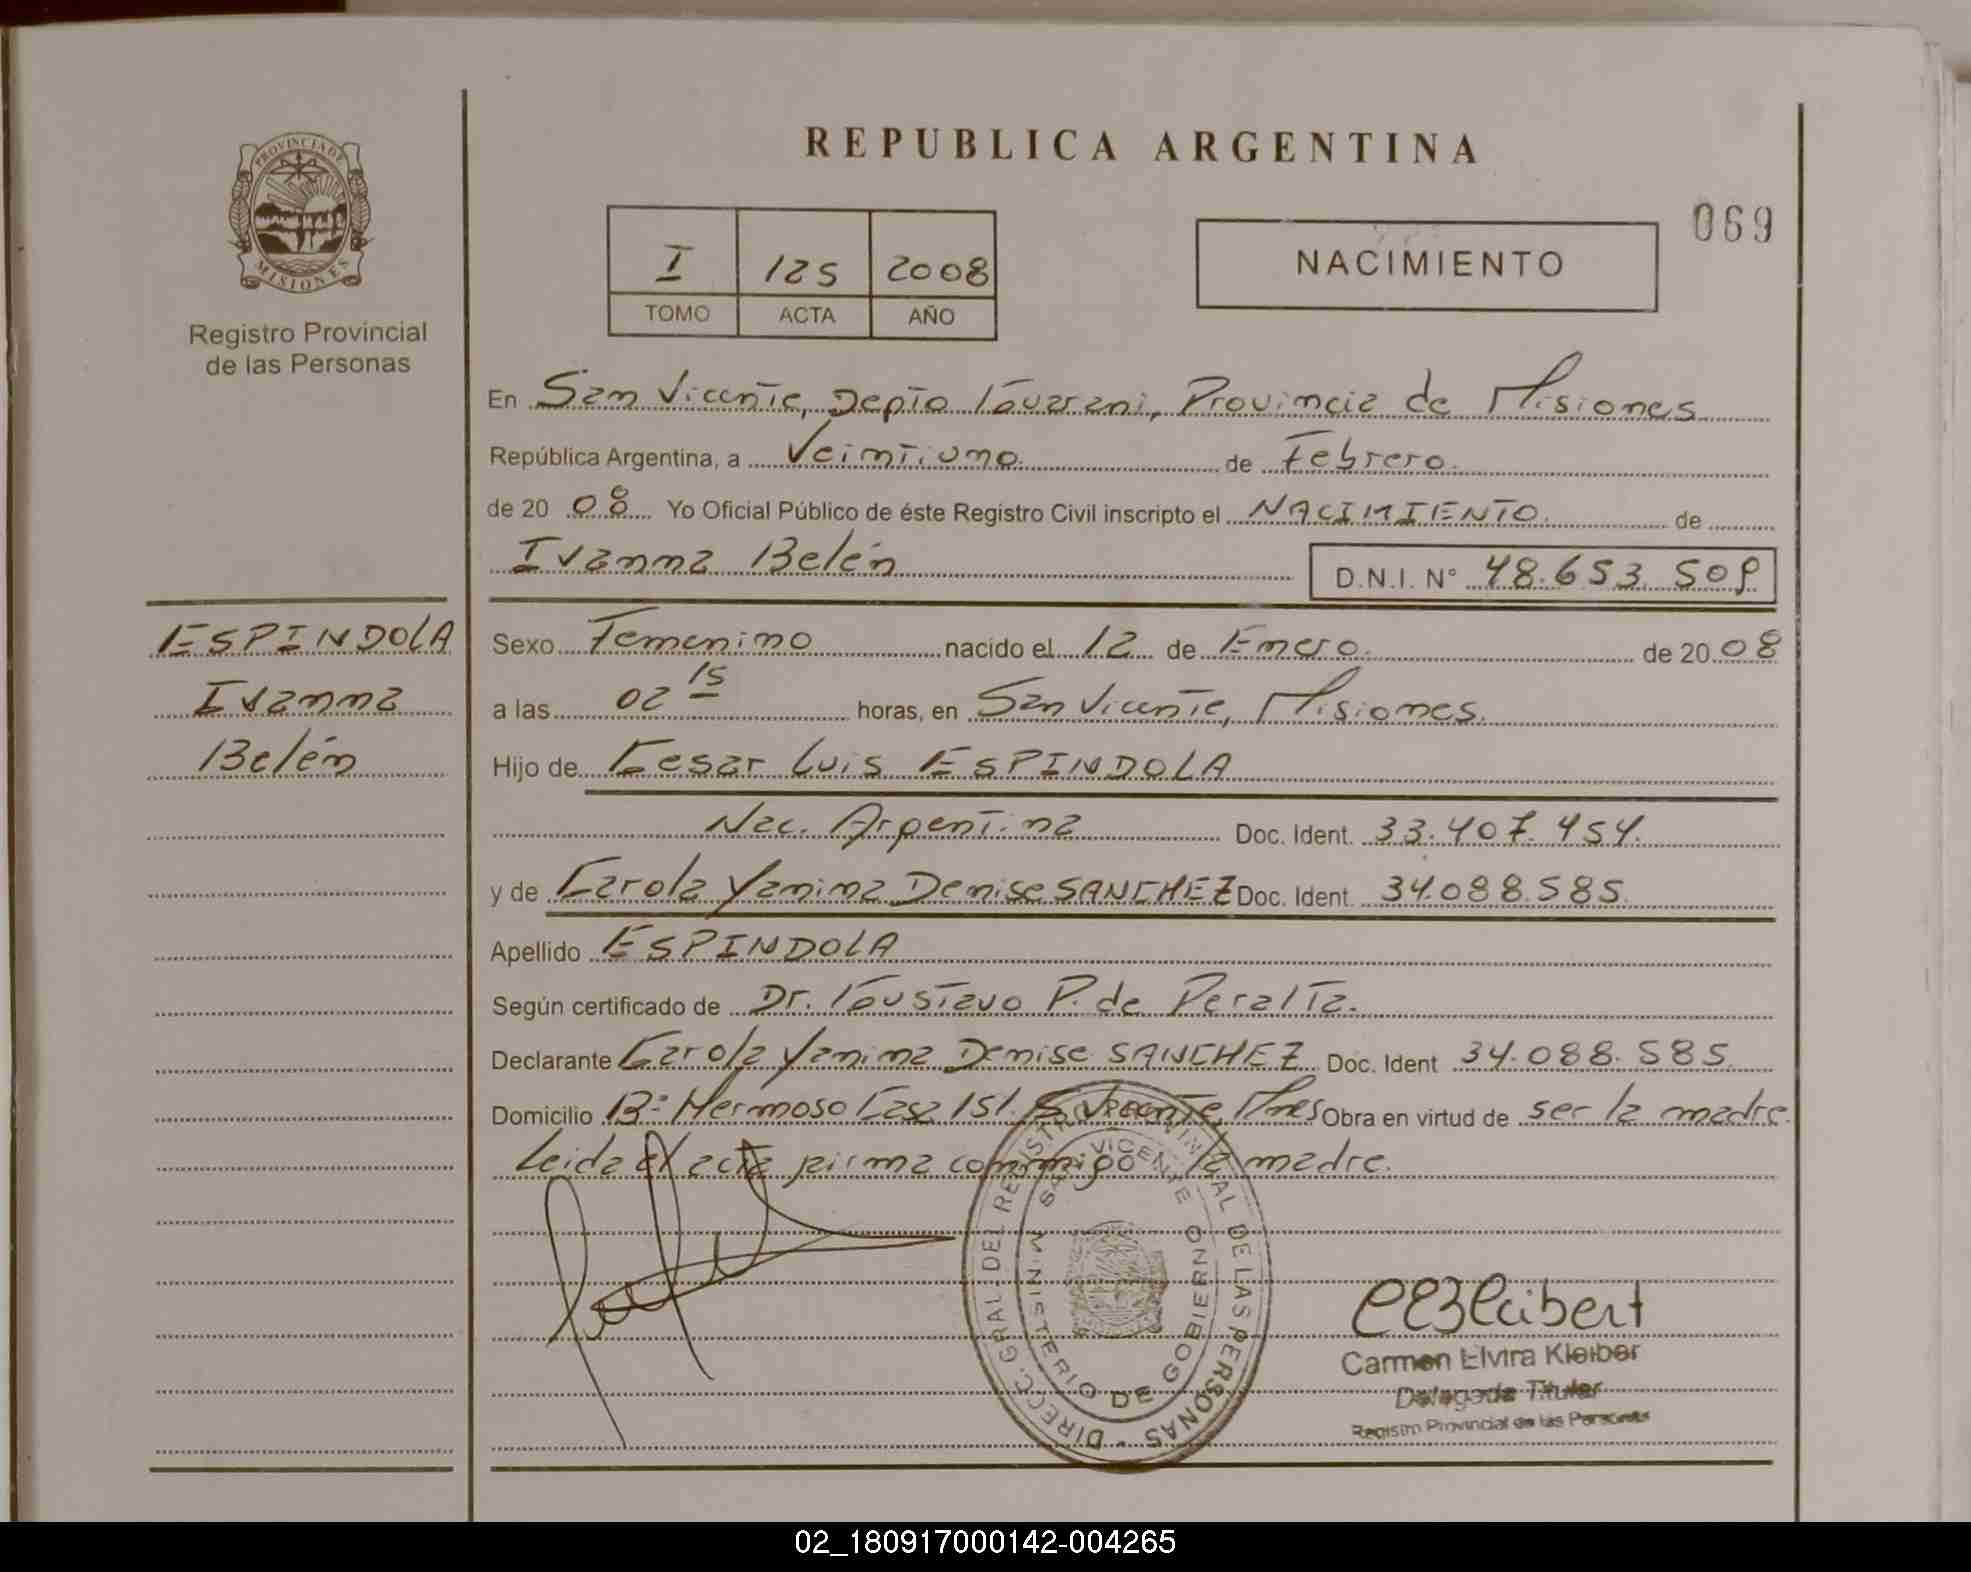 PROVINCIA DE
MISIONES
Registro Provincial
de las Personas
ESPINDOLA
Ivanna
Belén
REPUBLICA ARGENTINA
069
I 125 2008
TOMO ACTA AÑO
NACIMIENTO
En San Vicente, Depto Guarani, Provincia de Misiones
República Argentina, a Veintiuno. de Febrero.
de 20 08 Yo Oficial Público de éste Registro Civil inscripto el NACIMIENTO. de
Ivanna Belén D.N.I. N° 48.653.509
Sexo Femenino nacido el 12 de Enero. de 20 08
a las 02 15 horas, en San Vicente, Misiones.
Hijo de Cesar Luis ESPINDOLA
Nac. Argentina Doc. Ident. 33.407.454.
y de Carola Yanina Denise SANCHEZ Doc. Ident. 34.088.585.
Apellido ESPINDOLA
Según certificado de Dr. Gustavo P. de Peralta.
Declarante Carola Yanina Denise SANCHEZ Doc. Ident 34.088.585.
Domicilio B° Hermoso Casa 151. S. Vicente, Mnes Obra en virtud de ser la madre.
Leida el acta firma conmigo la madre.
DIRECC. GRAL. DEL REGISTRO PROVINCIAL DE LAS PERSONAS
SAN VICENTE
MINISTERIO DE GOBIERNO
CEKleibert
Carmen Elvira Kleiber
Delegada Titular
Registro Provincial de las Personas
02_180917000142-004265